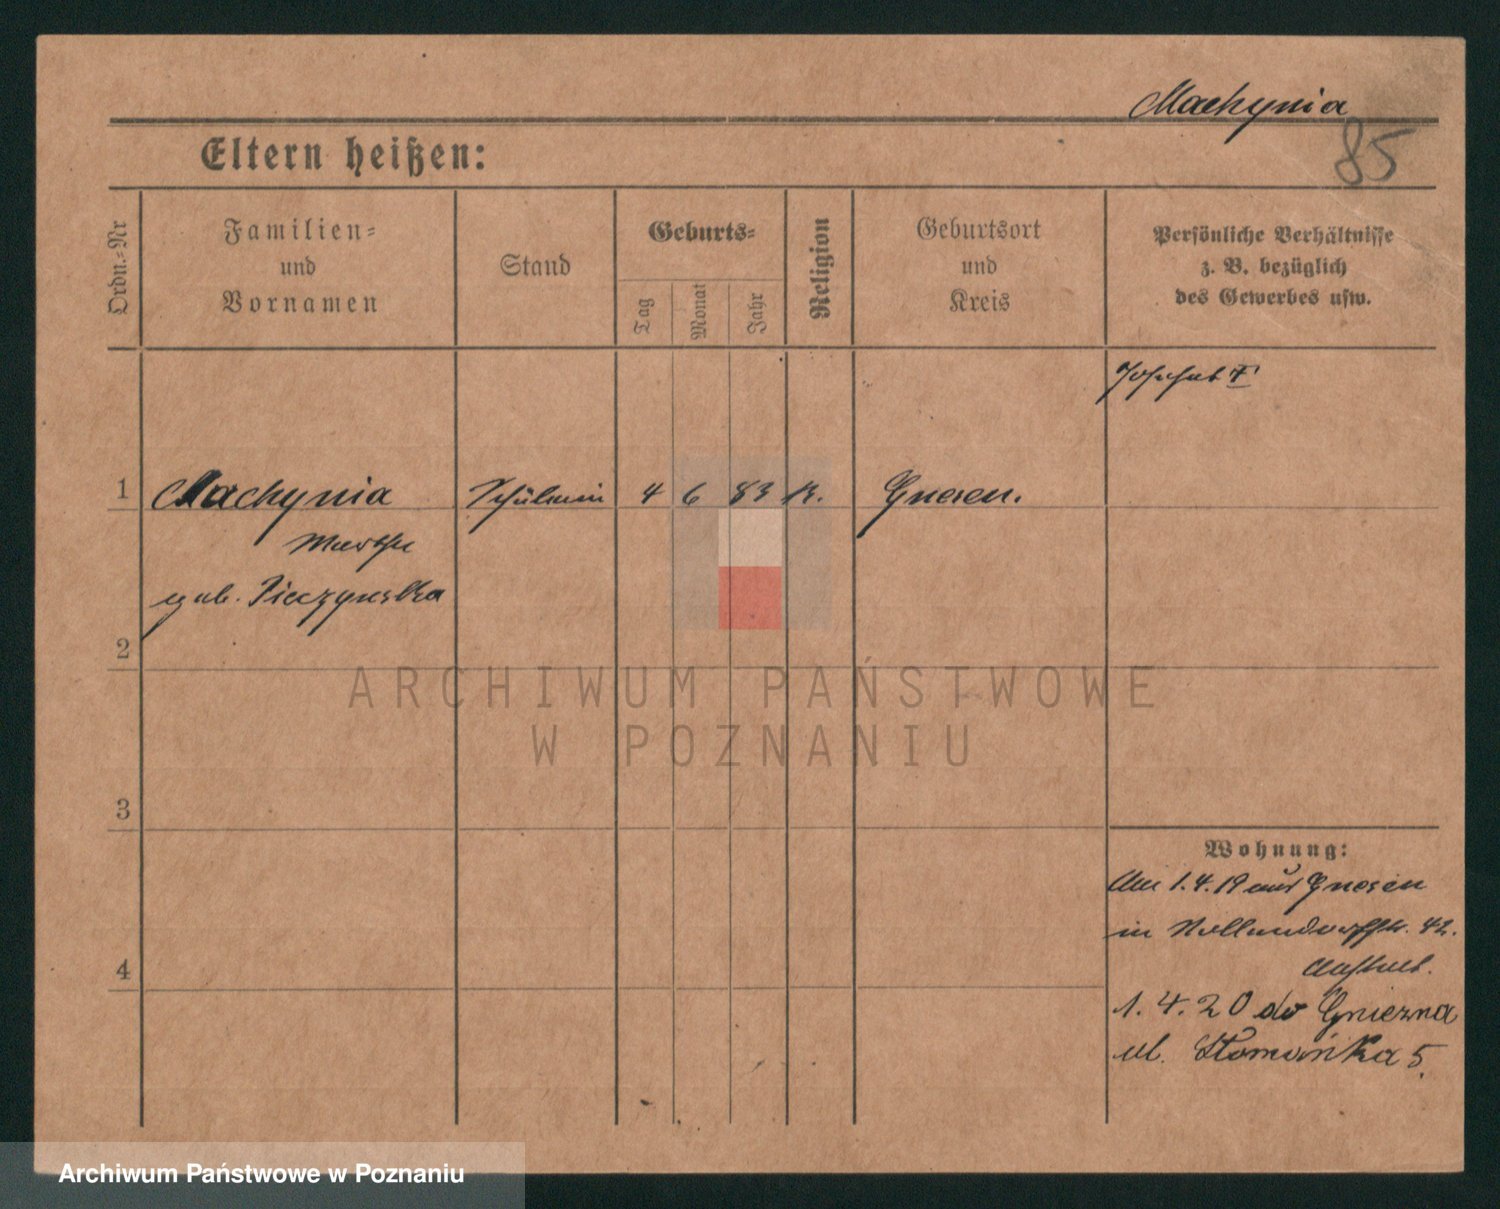 Machynia
85
Eltern heißen:
Ordn.-Nr
Familien-
und
Vornamen
Stand
Geburts-
Tag
Monat
Jahr
Religion
Geburtsort
und
Kreis
Persönliche Verhältnisse
z. B. bezüglich
des Gewerbes usw.
1
Machynia
4
6
83
K.
Gnesen.
Martha
geb. Pieczynska
2
3
4
Wohnung:
Am 1.4.19 aus Gnesen
in Nollendorffstr. 42.
1.4.20 do Gniezna
ul. Słomianka 5.
ARCHIWUM PAŃSTWOWE
W POZNANIU
Archiwum Państwowe w Poznaniu